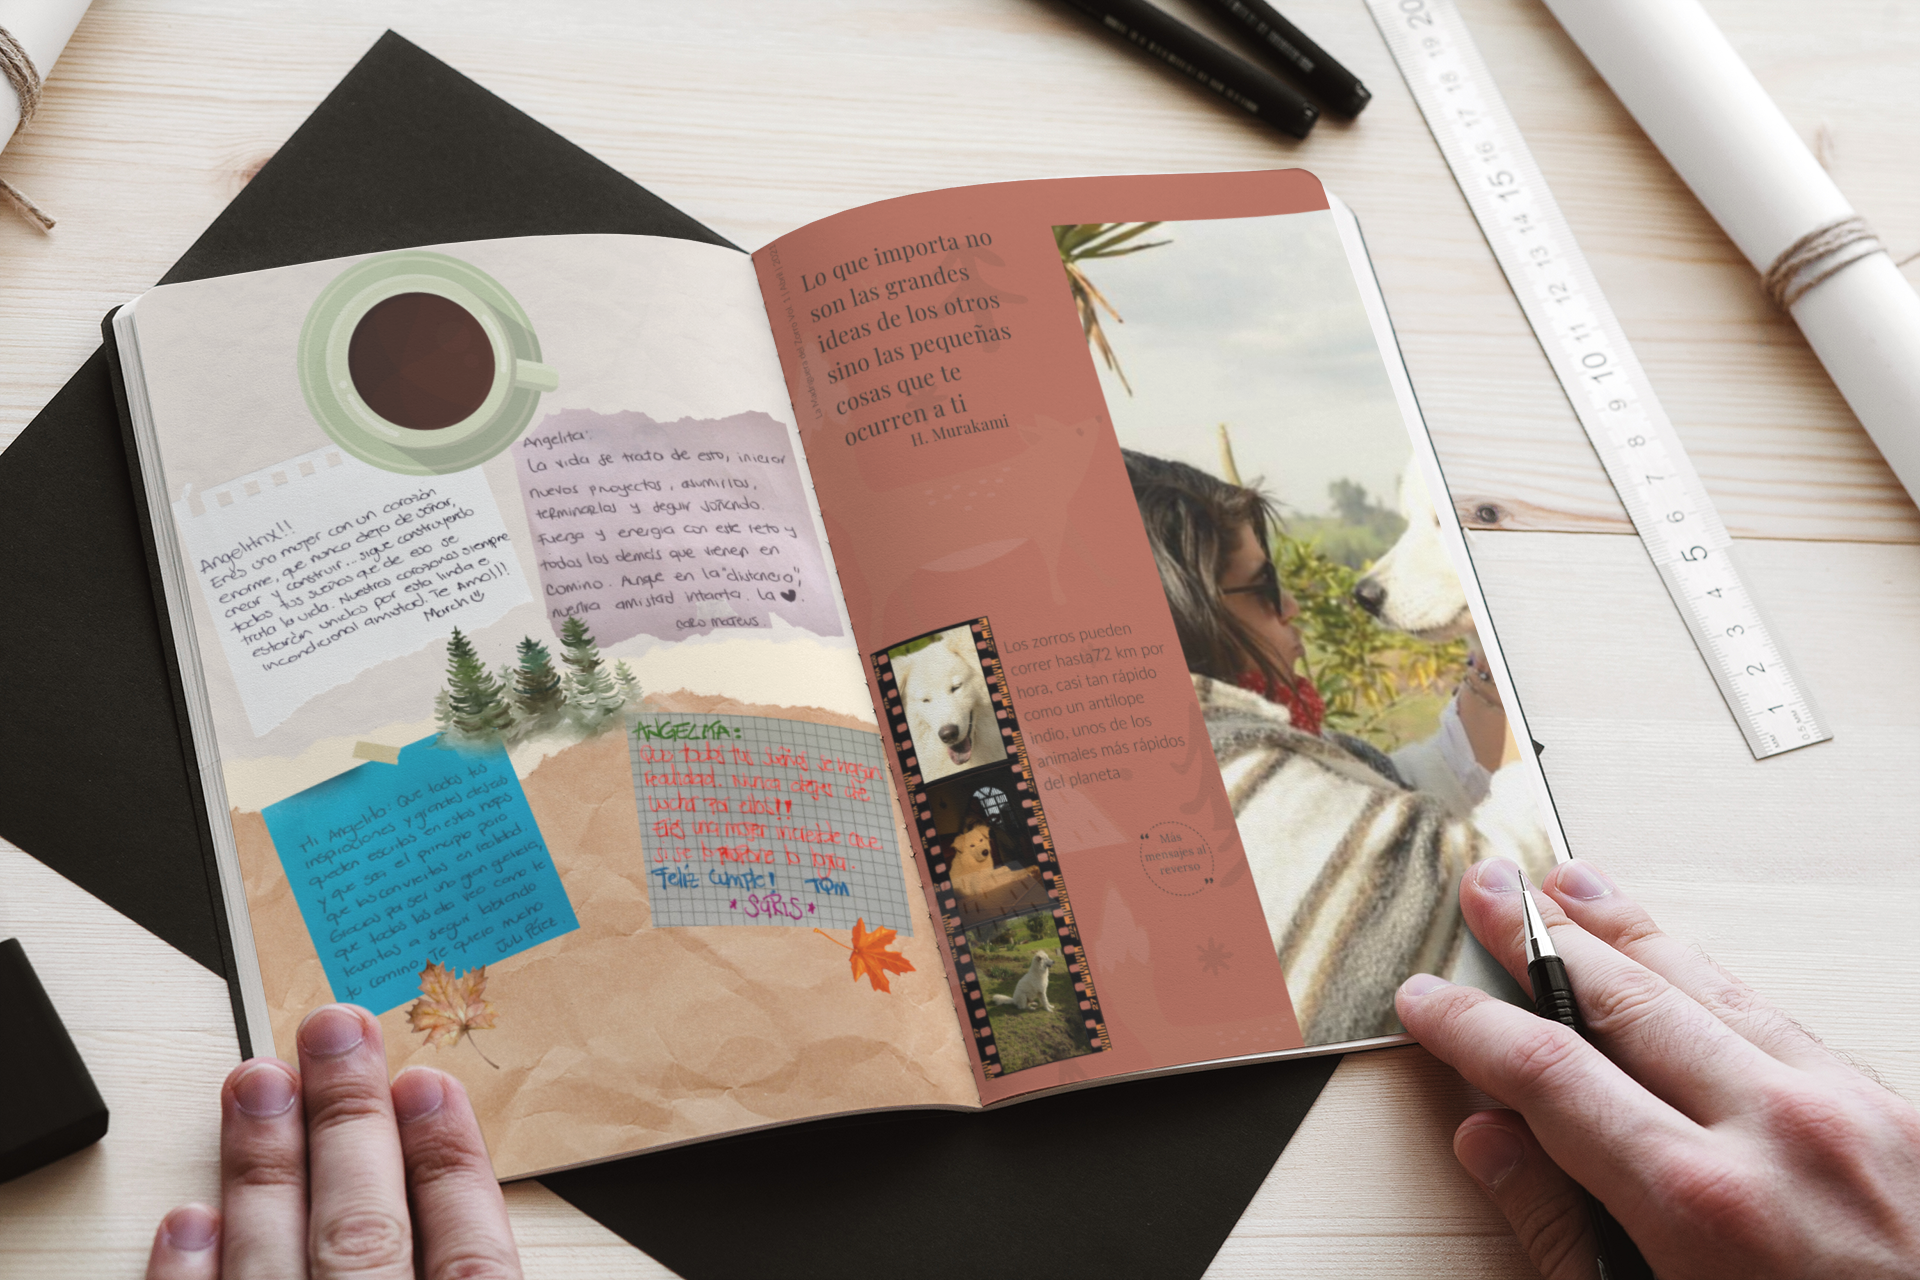 Angelitnx!!
Eres una mujer con un corazón
enorme, que nunca dejo de soñar,
crear y construir... sigue construyendo
todos tus sueños que de eso se
trata la vida. Nuestros corazones siempre
estarán unidos por esta linda e
incondicional amistad. Te Amo!!!
March
Angelita:
La vida se trata de esto, iniciar
nuevos proyectos, asumirlos,
terminarlos y seguir soñando.
Fuerza y energia con este reto y
todos los demás que vienen en
camino. Aunque en la "distancia",
nuestra amistad intacta. La ♥.
Caro Mateus.
Hi Angelita: Que todas tus
inspiraciones y grandes deseos
queden escritos en estas hojas
y que sea el principio para
que los conviertas en realidad.
Gracias por ser una gran guerrera,
que todos los días veo como te
levantas a seguir labrando
tu camino. Te quiero mucho
Juli Pérez.
ANGELITA:
Que todos tus sueños se hagan
realidad. Nunca dejes de
luchar por ellos!!
Eres una mujer increible que
si se lo propone lo logra.
Feliz Cumple! TQM
*SARIS*
La Madriguera del Zorro Vol. 1 | Abril | 2021
Lo que importa no
son las grandes
ideas de los otros
sino las pequeñas
cosas que te
ocurren a ti
H. Murakami
Los zorros pueden
correr hasta72 km por
hora, casi tan rápido
como un antílope
indio, unos de los
animales más rápidos
del planeta
“ Más
mensajes al
reverso ”
20 19 18 17 16 15 14 13 12 11 10 9 8 7 6 5 4 3 2 1
0.5 MM
MM